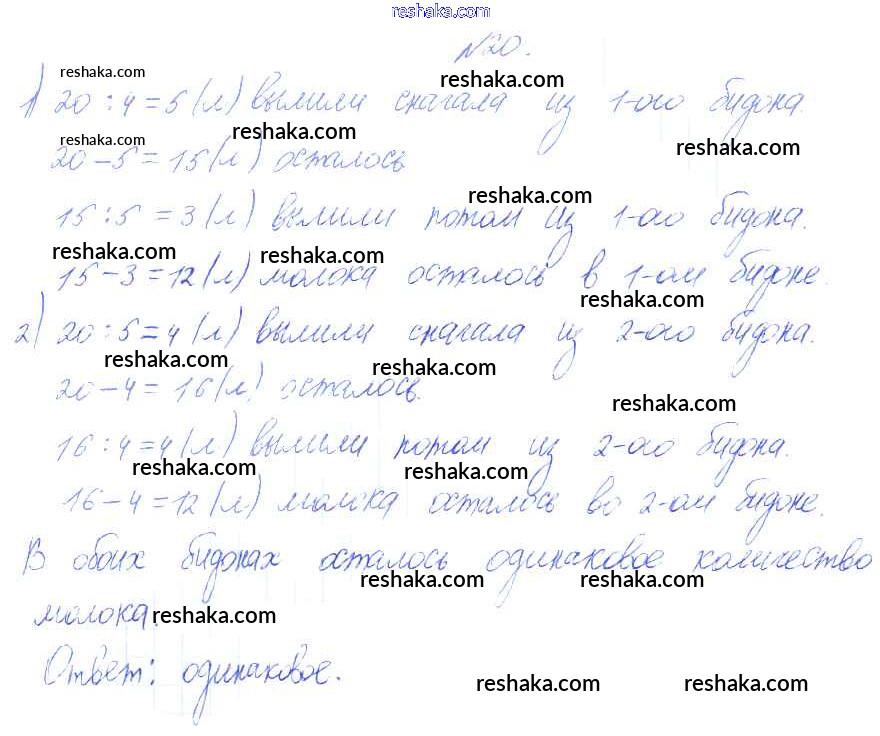 reshaka.com
№20.
reshaka.com
reshaka.com
1) 20 : 4 = 5 (л) вылили сначала из 1-ого бидона.
reshaka.com
reshaka.com
reshaka.com
20 - 5 = 15 (л) осталось
reshaka.com
15 : 5 = 3 (л) вылили потом из 1-ого бидона.
reshaka.com
reshaka.com
15 - 3 = 12 (л) молока осталось в 1-ом бидоне.
reshaka.com
2) 20 : 5 = 4 (л) вылили сначала из 2-ого бидона.
reshaka.com
reshaka.com
20 - 4 = 16 (л) осталось.
reshaka.com
16 : 4 = 4 (л) вылили потом из 2-ого бидона.
reshaka.com
reshaka.com
16 - 4 = 12 (л) молока осталось во 2-ом бидоне.
В обоих бидонах осталось одинаковое количество
reshaka.com
reshaka.com
молока.
reshaka.com
Ответ: одинаковое.
reshaka.com
reshaka.com